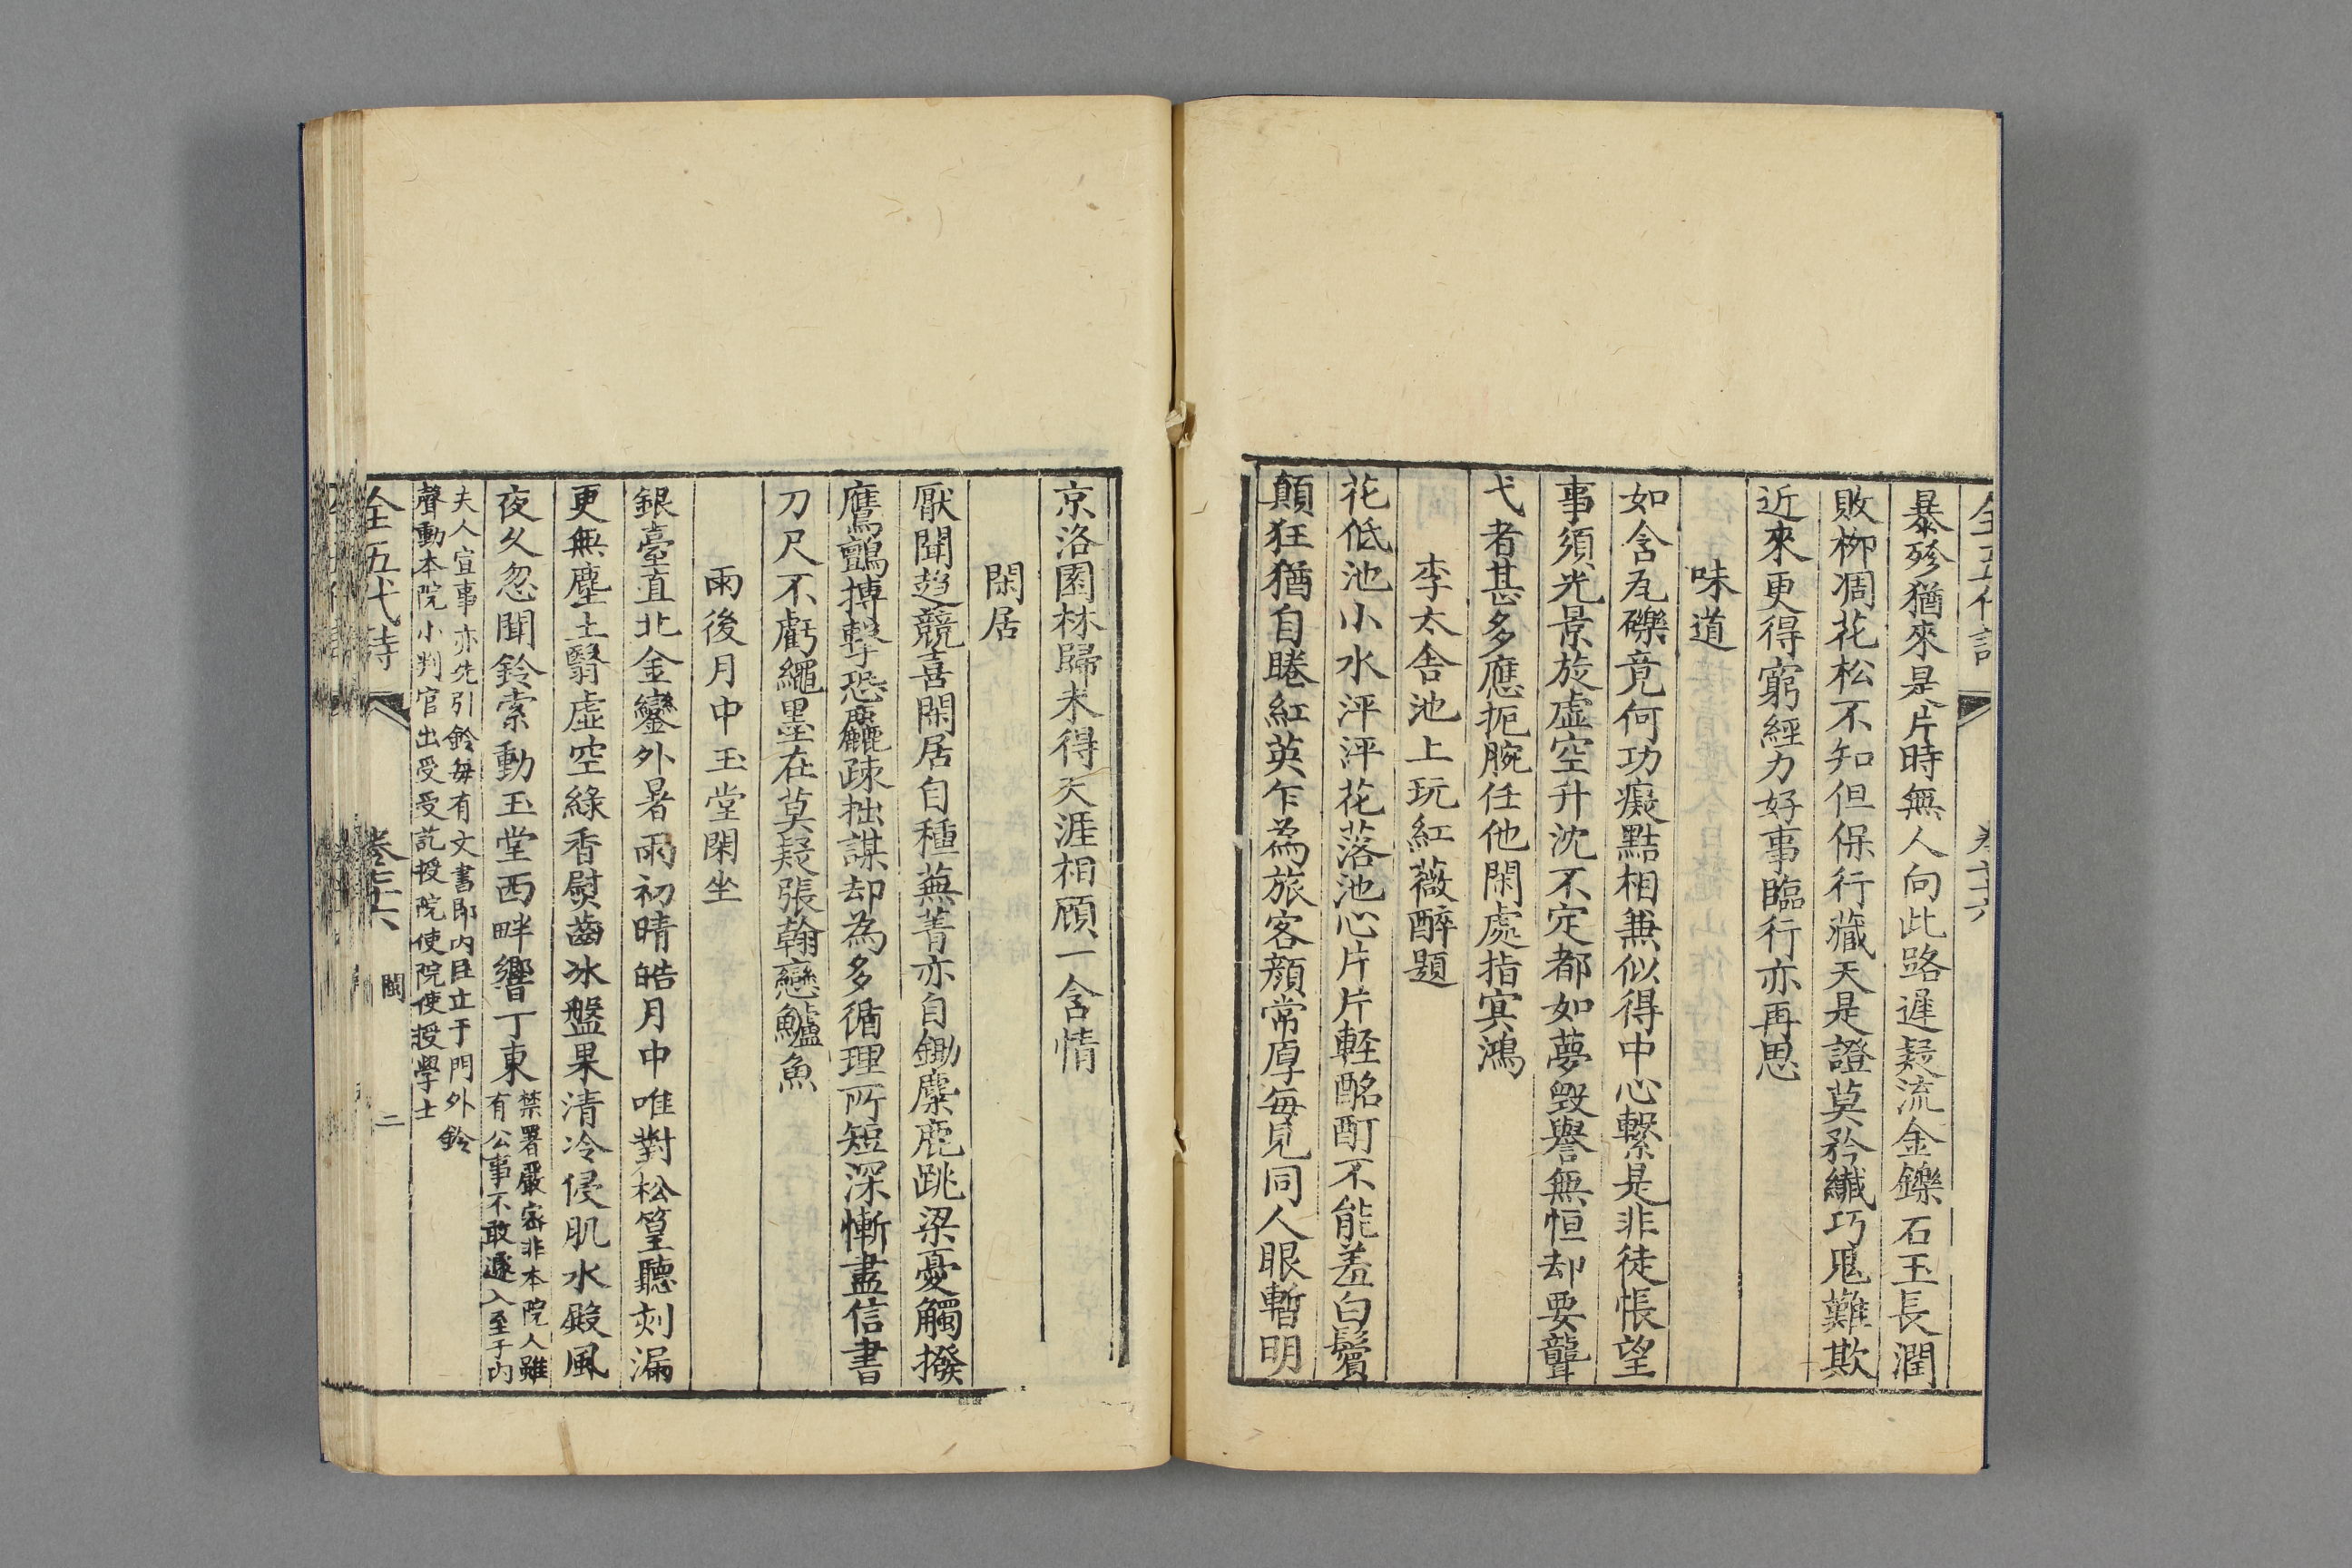 暴殄猶來是片時無人向此路遲疑流金鑠石玉長潤
敗柳凋花松不知但保行藏天是證莫矜纎巧鬼難欺
近來更得窮經力好事臨行亦再思
味道
如含瓦礫竟何功癡黠相兼似得中心繫是非徒悵望
事須光景旋虛空升沈不定都如夢毀譽無恒却要聾
弋者甚多應扼腕任他閑處指冥鴻
李太舍池上玩紅薇醉題
花低池小水泙泙花落池心片片輕酩酊不能羞白鬢
顛狂猶自睠紅英乍為旅客顏常厚每見同人眼暫明
京洛園林歸未得天涯相顧一含情
閑居
厭聞趨競喜閑居自種蕪菁亦自鋤麋鹿跳梁憂觸撥
鷹鸇搏擊恐麤疎拙謀却為多循理所短深慚盡信書
刀尺不虧繩墨在莫疑張翰戀鱸魚
雨後月中玉堂閑坐
銀臺直北金鑾外暑雨初晴皓月中唯對松篁聽刻漏
更無塵土翳虛空綠香熨齒冰盤果清冷侵肌水殿風
夜久忽聞鈴索動玉堂西畔響丁東
禁署嚴密非本院人雖
有公事不敢遽入至于內
夫人宣事亦先引鈴每有文書即內臣立于門外鈴
聲動本院小判官出受受訖授院使院使授學士
全五代詩
卷六
閩
二